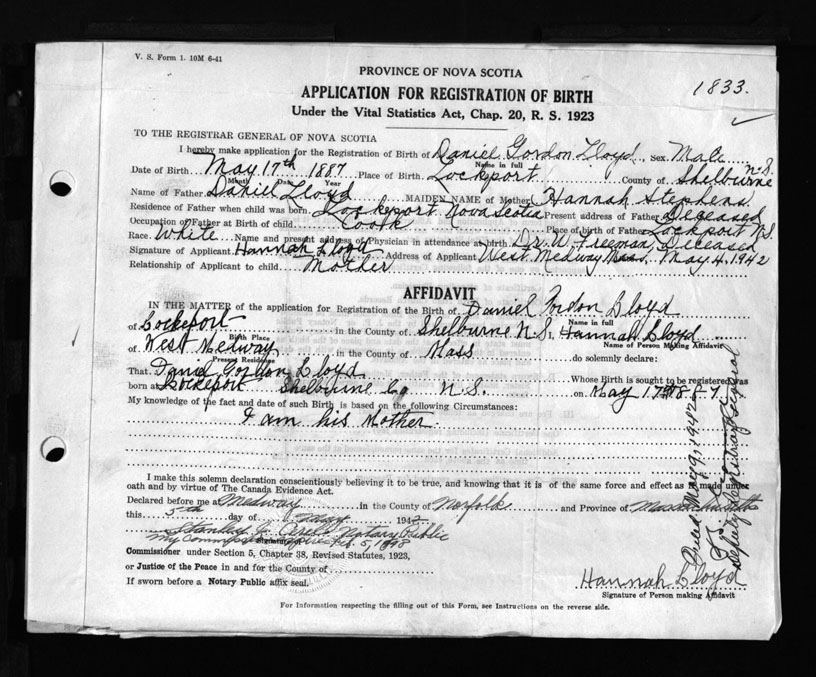 V. S. Form 1. 10M 6-41
PROVINCE OF NOVA SCOTIA
1833.
APPLICATION FOR REGISTRATION OF BIRTH
Under the Vital Statistics Act, Chap. 20, R. S. 1923
TO THE REGISTRAR GENERAL OF NOVA SCOTIA
I hereby make application for the Registration of Birth of Daniel Gordon Lloyd Sex Male
Name in full
Date of Birth May 17th 1887 Place of Birth Lockport County of Shelburne N.S.
Month Date Year
Name of Father Daniel Lloyd MAIDEN NAME of Mother Hannah Stephens
Residence of Father when child was born Lockeport Nova Scotia Present address of Father Deceased
Occupation of Father at Birth of child Cook Place of birth of Father Lockport N.S.
Race White Name and present address of Physician in attendance at birth Dr. W. Freeman, Deceased
Signature of Applicant Hannah Lloyd Address of Applicant West Medway Mass, May 4, 1942
Relationship of Applicant to child Mother
AFFIDAVIT
IN THE MATTER of the application for Registration of the Birth of Daniel Gordon Lloyd
Name in full
of Lockeport in the County of Shelburne N.S. I, Hannah Lloyd
Birth Place Name of Person Making Affidavit
of West Medway in the County of Mass do solemnly declare:
Present Residence
That Daniel Gordon Lloyd Whose Birth is sought to be registered was
born at Lockeport Shelburne Co N.S. on May 17th 1887
My knowledge of the fact and date of such Birth is based on the following Circumstances:
I am his Mother.
I make this solemn declaration conscientiously believing it to be true, and knowing that it is of the same force and effect as if made under
oath and by virtue of The Canada Evidence Act.
Declared before me at Medway in the County of Norfolk and Province of Massachusetts
this 5th day of May 1942
Stanley J. Notary Public
My Commission Expires Feb. 5, 1948
Commissioner under Section 5, Chapter 38, Revised Statutes, 1923,
or Justice of the Peace in and for the County of
If sworn before a Notary Public affix seal.
Hannah Lloyd
Signature of Person making Affidavit
For Information respecting the filling out of this Form, see Instructions on the reverse side.
Filed May 9, 1942
Deputy Registrar General